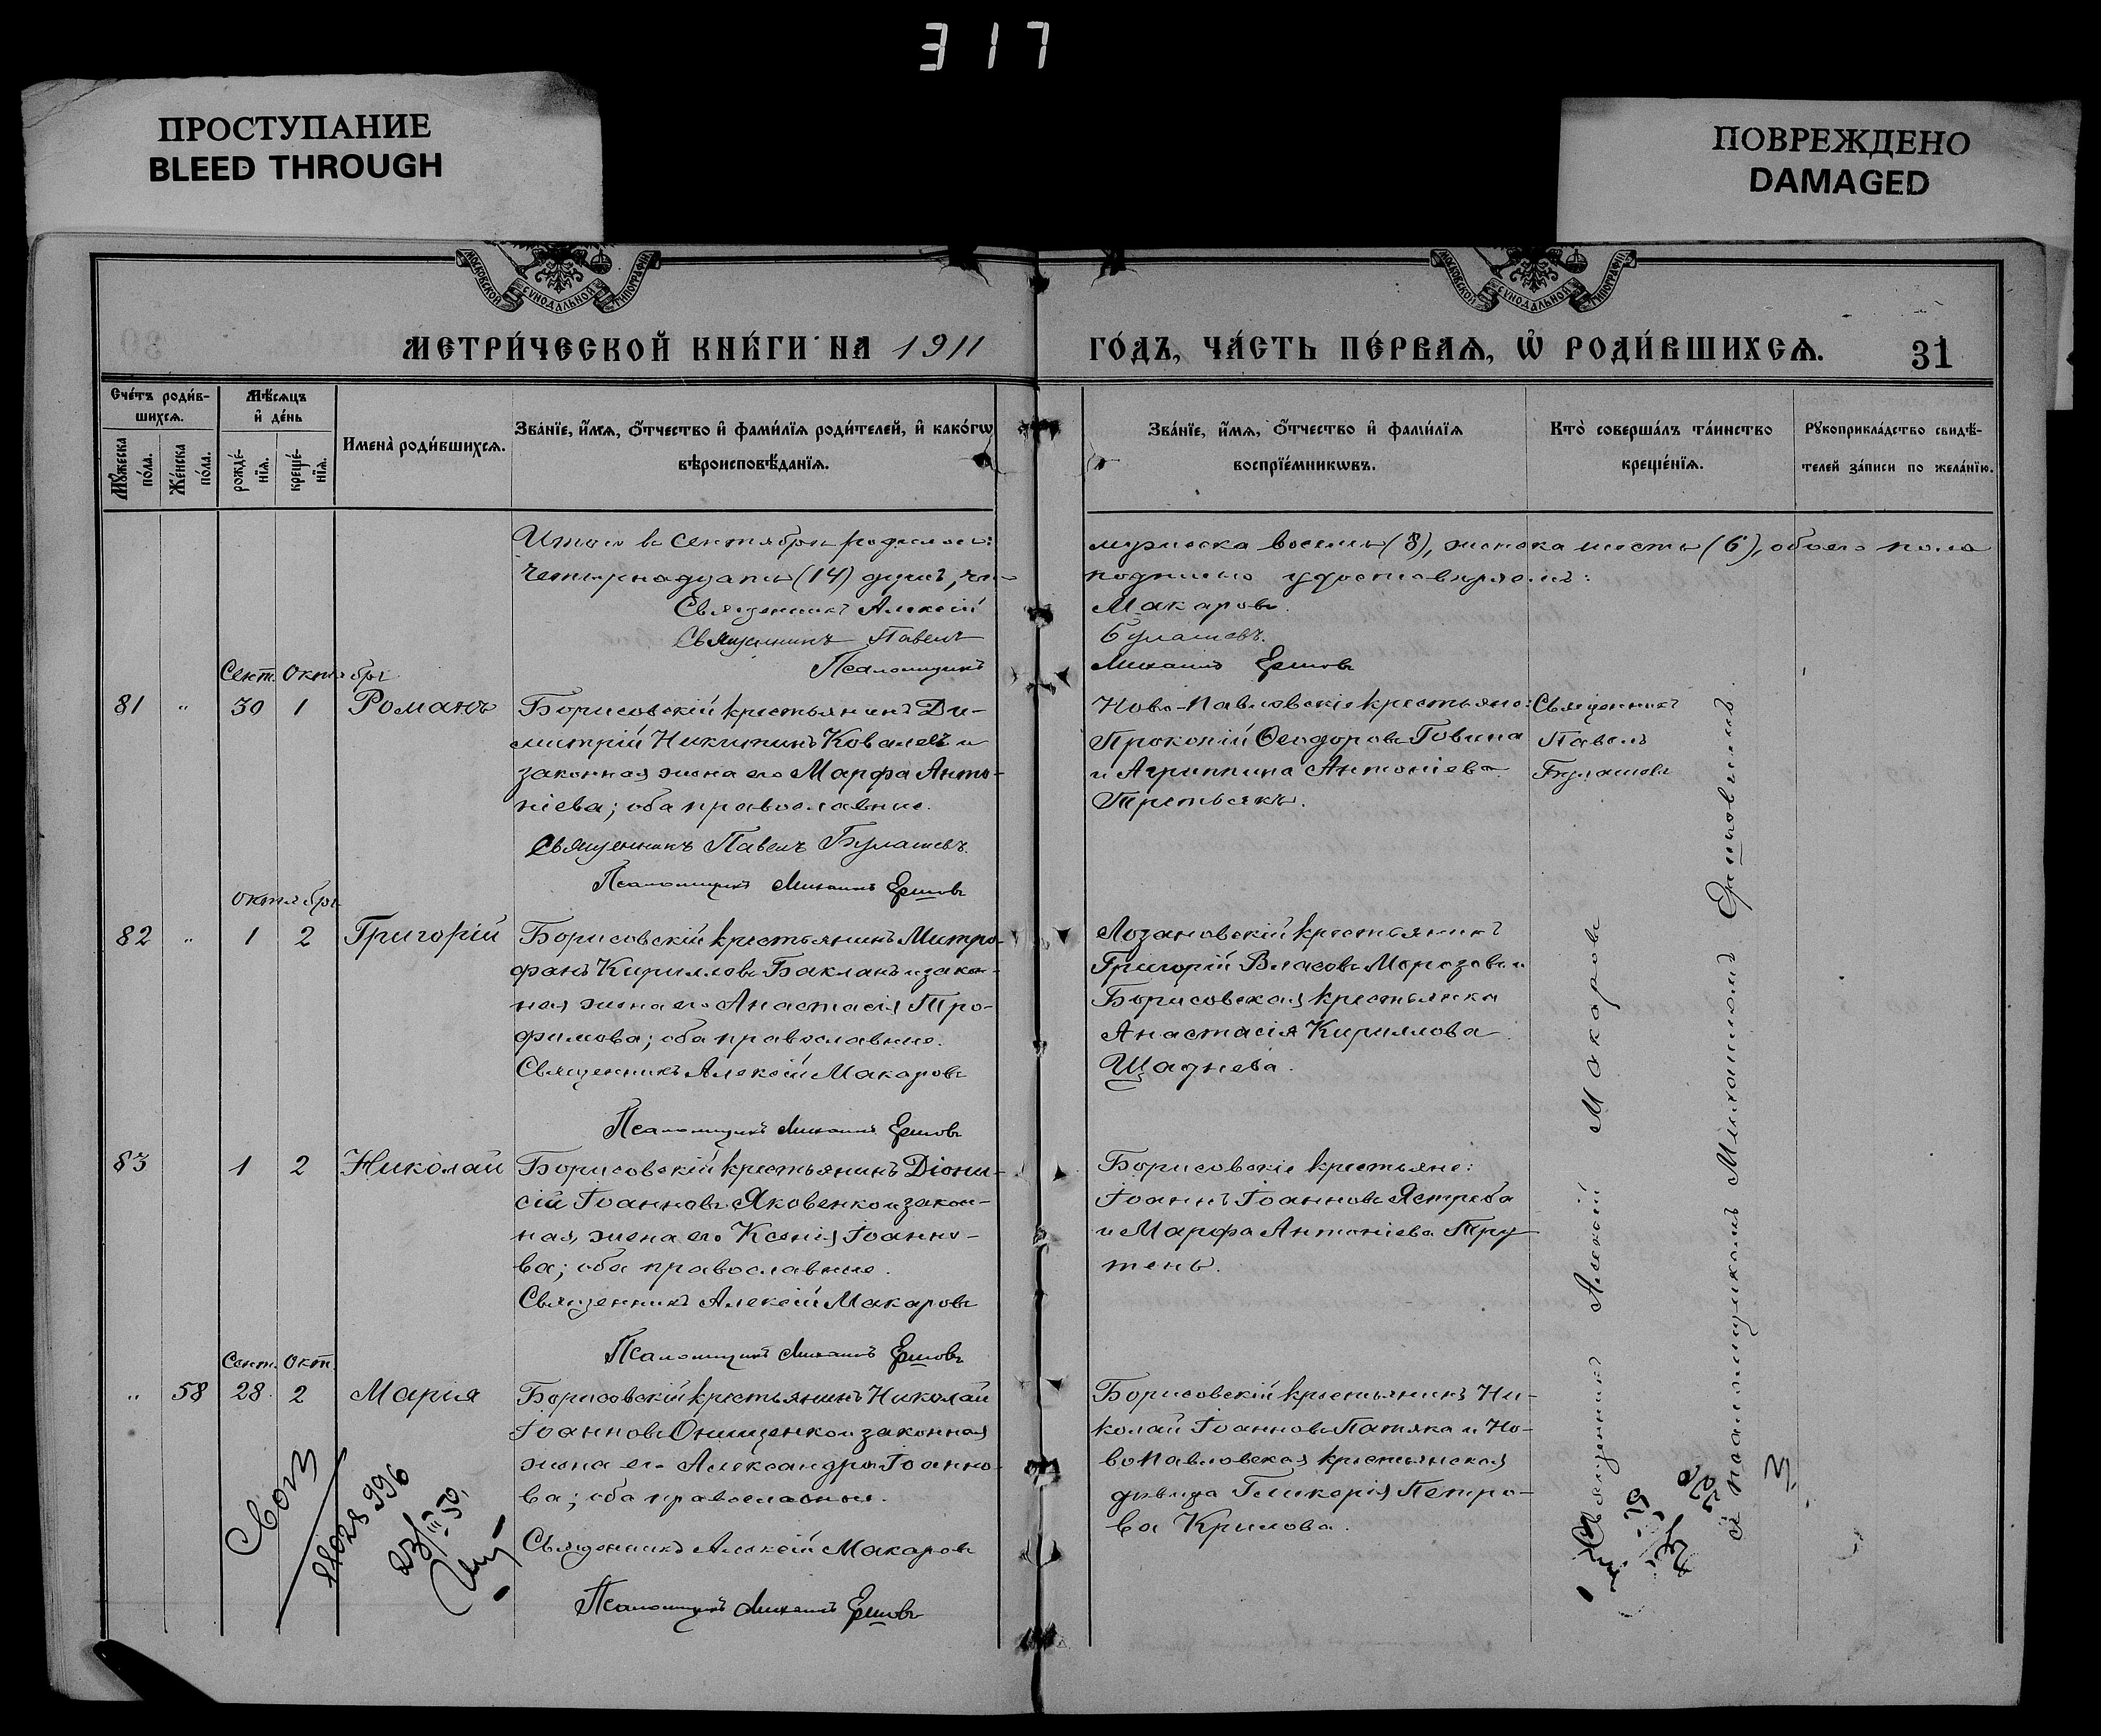 317
ПРОСТУПАНИЕ
BLEED THROUGH
ПОВРЕЖДЕНО
DAMAGED
МОСКОВСКОЙ СѴНОДАЛЬНОЙ ТИПОГРАФІИ
МОСКОВСКОЙ СѴНОДАЛЬНОЙ ТИПОГРАФІИ
МЕТРИ́ЧЕСКОЙ КНИ́ГИ НА 1911
ГО́ДЪ, ЧА́СТЬ ПЕ́РВАѦ, Ѡ҆ РОДИ́ВШИХСѦ. 31
Сче́тъ роди́в-
шихсѧ.
Мꙋ́жеска по́ла.
Же́нска по́ла.
Мѣ́сѧцъ
и҆ де́нь
рожде́-нїѧ.
креще́-нїѧ.
Имена̀ роди́вшихсѧ.
Зва́нїе, и҆́мѧ, ѻ҆́тчество и҆ фами́лїѧ роди́телей, и҆ како́гѡ
вѣроисповѣ́данїѧ.
Зва́нїе, и҆́мѧ, ѻ҆́тчество и҆ фами́лїѧ
воспрїе́мникѡвъ.
Кто̀ соверша́лъ та́инство
креще́нїѧ.
Рꙋкоприкла́дство свидѣ́-
телей за́писи по жела́нїю.
Итого въ Сентябрѣ родилось: мужеска восемь (8), женска шесть (6), обоего пола
четырнадцать (14) душъ, что подписью удостовѣряемъ:
Священникъ Алексій Макаровъ.
Священникъ Павелъ Булашевъ.
Псаломщикъ Михаилъ Ершовъ
Сент. Октября
81 " 30 1 Романъ
Борисовскій крестьянинъ Ди-
митрій Никитинъ Ковалевъ и
законная жена его Марфа Анто-
ніева; оба православные.
Священникъ Павелъ Булашевъ.
Псаломщикъ Михаилъ Ершовъ
Ново-Павловскіе крестьяне:
Прокопій Ѳеодоровъ Говина
и Агриппина Антоніева
Третьякъ.
Священникъ
Павелъ
Булашевъ
октября
82 " 1 2 Григорій
Борисовскій крестьянинъ Митро-
фанъ Кирилловъ Бакланъ и закон-
ная жена его Анастасія Тро-
фимова; оба православные.
Священникъ Алексій Макаровъ
Псаломщикъ Михаилъ Ершовъ
Лозановскій крестьянинъ
Григорій Власовъ Морозовъ и
Борисовская крестьянка
Анастасія Кириллова
Щаднева.
83 1 2 Николай
Борисовскій крестьянинъ Діони-
сій Іоанновъ Яковенко и закон-
ная жена его Ксенія Іоанно-
ва; оба православные.
Священникъ Алексій Макаровъ
Псаломщикъ Михаилъ Ершовъ
Борисовскіе крестьяне:
Іоаннъ Іоанновъ Ястреба
и Марфа Антоніева Тру-
тень.
Сент. Окт.
" 58 28. 2 Марія
Борисовскій крестьянинъ Николай
Іоанновъ Онищенко и законная
жена его Александра Іоанно-
ва; оба православные.
Священникъ Алексій Макаровъ
Псаломщикъ Михаилъ Ершовъ
Борисовскій крестьянинъ Ни-
колай Іоанновъ Патяка и Но-
вопавловская крестьянская
дѣвица Гликерія Петро-
ва Крилова.
Священникъ Алексій Макаровъ
съ псаломщикомъ Михаиломъ Ершовымъ.